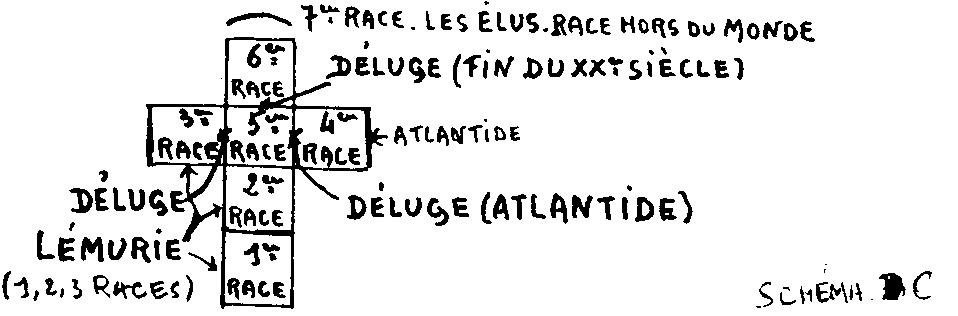 7ème RACE. LES ÉLUS. RACE HORS DU MONDE
6ème
RACE
DÉLUGE (FIN DU XXème SIÈCLE)
3ème
RACE
5ème
RACE
4ème
RACE
ATLANTIDE
DÉLUGE
2ème
RACE
DÉLUGE (ATLANTIDE)
LÉMURIE
(1, 2, 3 RACES)
1ère
RACE
SCHÉMA C